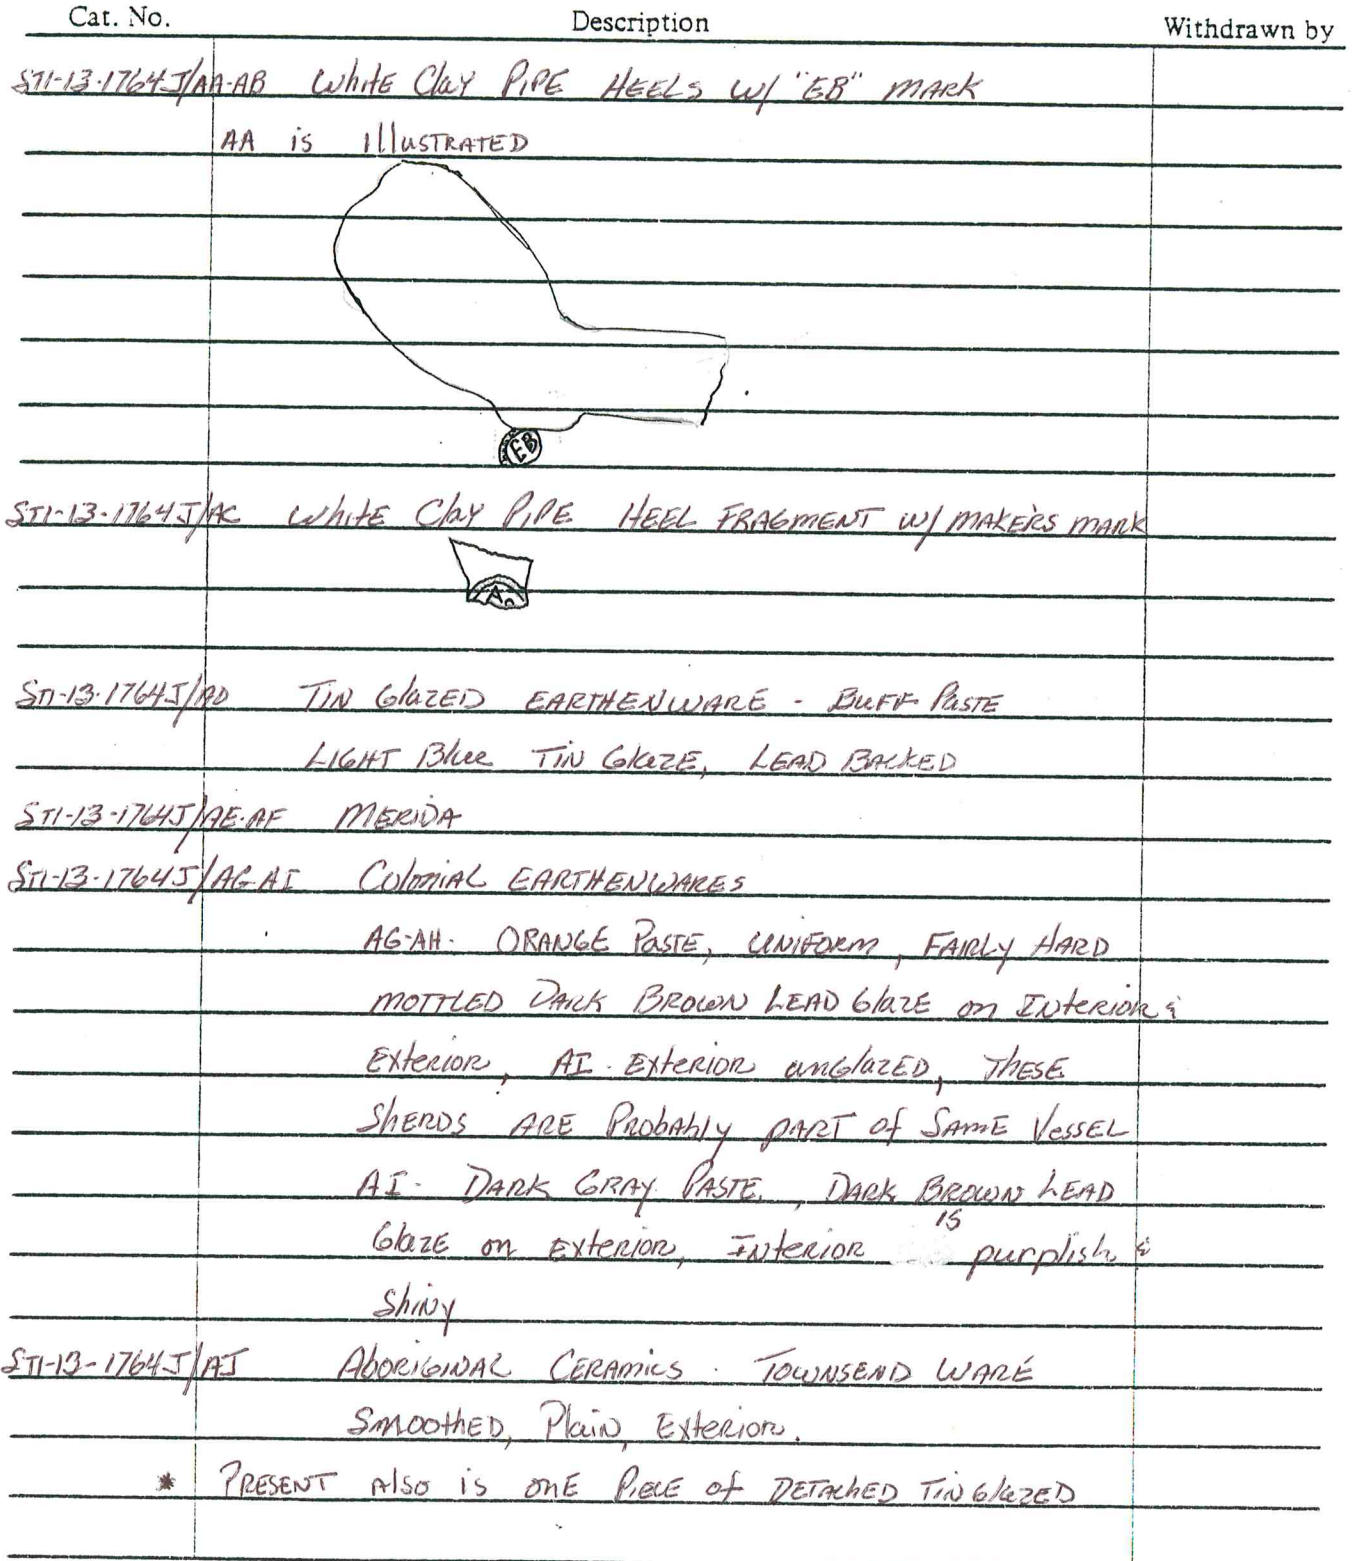 Cat. No. Description Withdrawn by
ST1-13-1764J/AA-AB White Clay PIPE HEELS w/ "EB" MARK
AA is IllUSTRATED
EB
ST1-13-1764J/AC White Clay PIPE HEEL FRAGMENT w/ MAKERS MARK
A
ST1-13-1764J/AD TIN GlazED EARTHENWARE - BUFF PASTE
LIGHT Blue TIN GlaZE, LEAD BACKED
ST1-13-1764J/AE-AF MERIDA
ST1-13-1764J/AG-AI Colonial EARTHENWARES
AG-AH- ORANGE PASTE, UNIFORM, FAIRLY HARD
MOTTLED DARK BROWN LEAD GlaZE on INteRIOR &
ExteRIOR, AI - ExteRIOR unGlaZED, THESE
SHERDS ARE PRobAbly PART of SAME VESSEL
AI- DARK GRAY PASTE, DARK BROWN LEAD
GlaZE on ExteRIOR, INteRIOR is purplish &
Shiny
ST1-13-1764J/AJ AboRIGINAL CERAMICS - TOWNSEND WARE
SmoothED, Plain, ExteRIOR.
* PRESENT Also is onE PIECE of DETACHED TIN GlaZED